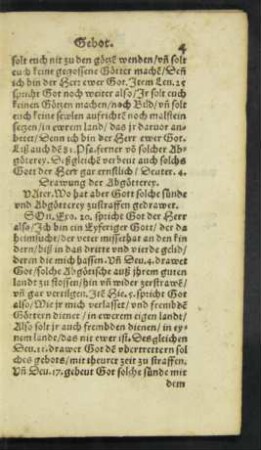 Gebot. 4
solt euch nit zu den götzē wenden/vñ solt
euch keine gegossene Götter machē/Deñ
ich bin der Herr ewer Got. Item Leu. 25
spricht Got noch weiter also/Jr solt euch
keinen Götzen machen/noch Bild/vñ solt
euch keine sewlen aufrichtē noch malstein
setzen/in ewerem land/das jr daruor an-
betet/Denn ich bin der Herr ewer Got.
Liß auch dē 81. Psa. ferner vō solcher Ab-
götterey. Deßgleichē verbeut auch solchs
Gott der Herr gar ernstlich/Deuter. 4.
Drawung der Abgötterey.
VAter. Wo hat aber Gott solche sünde
vnd Abgötterey zustraffen gedrawet.
SOn. Exo. 20. spricht Got der Herr
also/Ich bin ein Eyferiger Gott/der da
heimsucht/der veter missethat an den kin
dern/biß in das dritte vnd vierde gelid/
deren die mich hassen. Vñ Deu. 4. drawet
Got/solche Abgöttische auß jhrem guten
landt zu stossen/hin vñ wider zerstrawē/
vñ gar vertilgen. Item Hie. 5. spricht Got
also/Wie jr mich verlasset/vnd frembdē
Göttern dienet/in ewerem eigen landt/
Also solt jr auch frembden dienen/in ey-
nem lande/das nit ewer ist. Desgleichen
Deu. 11. drawet Got dē vbertrettern sol
ches gebots/mit theurer zeit zu straffen.
Vñ Deu. 17. gebeut Got solche sünde mit
dem